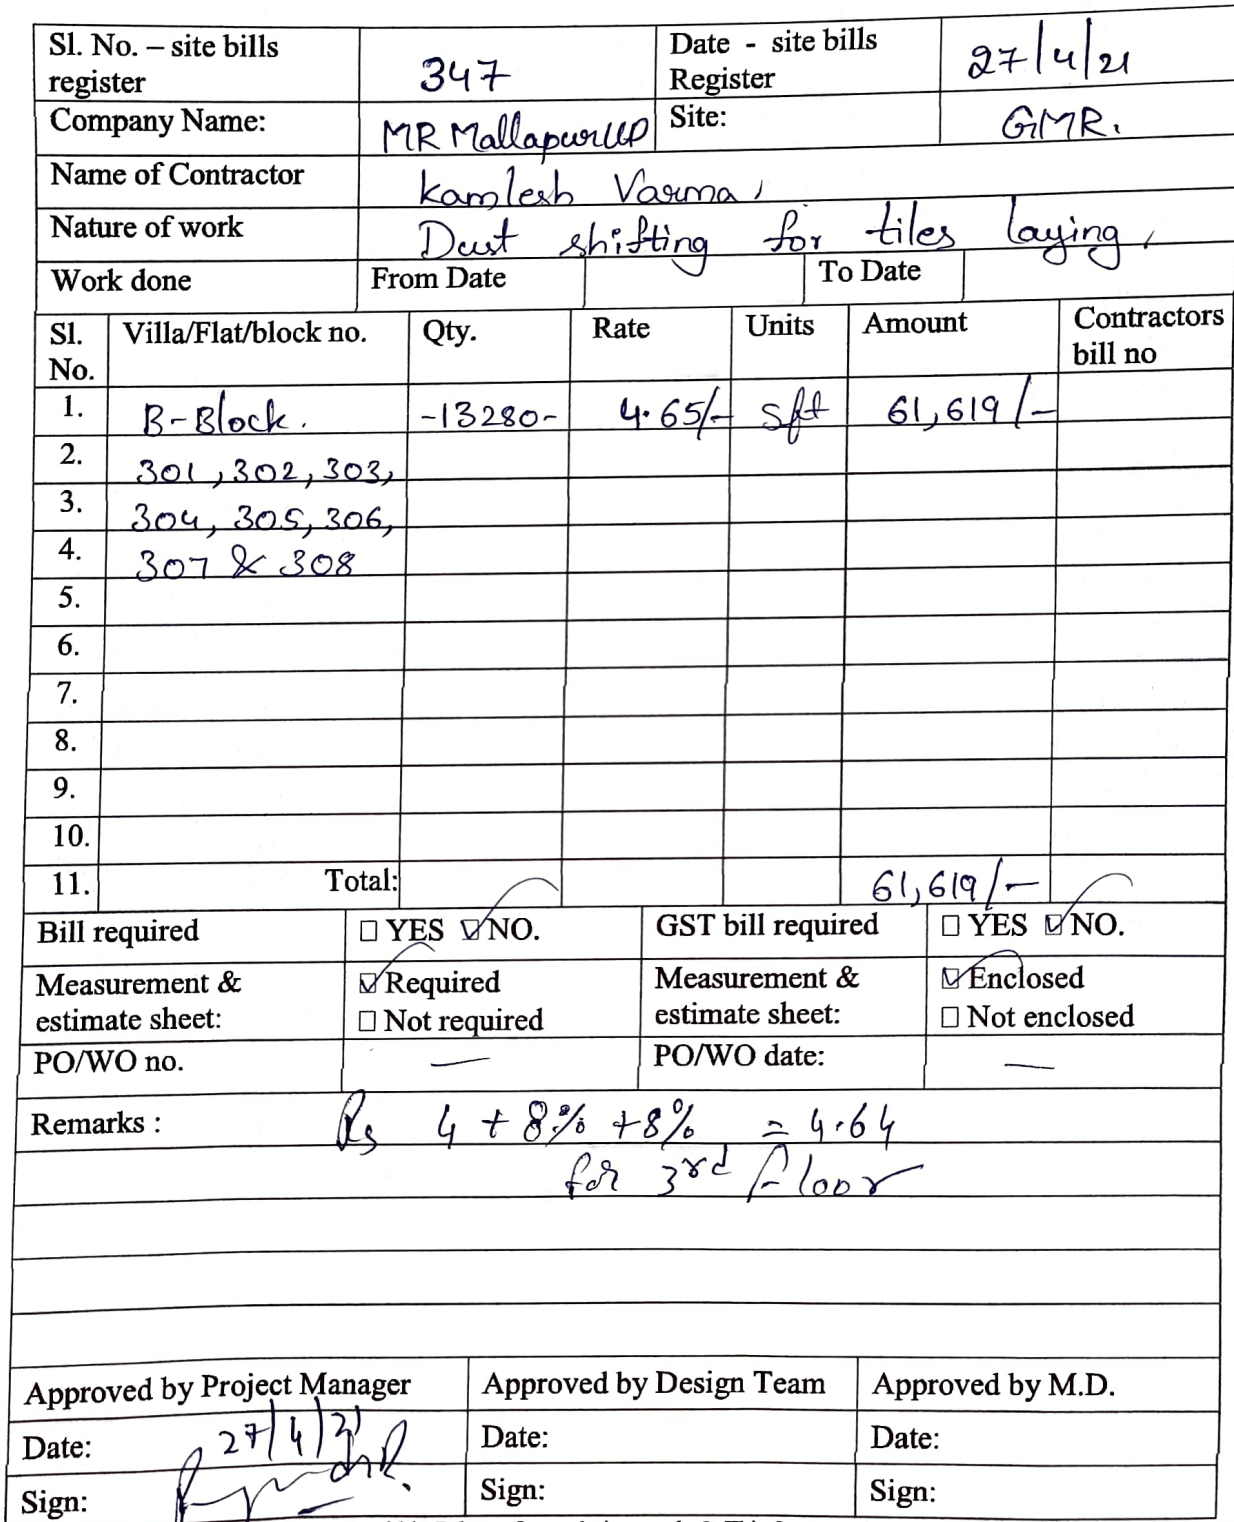 Sl. No. – site bills register 347 Date - site bills Register 27/4/21
Company Name: MR Mallapur LLP Site: GMR.
Name of Contractor Kamlesh Varma,
Nature of work Dust shifting for tiles laying,
Work done From Date To Date
Sl. No. Villa/Flat/block no. Qty. Rate Units Amount Contractors bill no
1. B-Block. -13280- 4.65/- sft 61,619/-
2. 301, 302, 303,
3. 304, 305, 306,
4. 307 & 308
5.
6.
7.
8.
9.
10.
11. Total: 61,619/-
Bill required ☐ YES ☑ NO. GST bill required ☐ YES ☑ NO.
Measurement & estimate sheet: ☑ Required ☐ Not required Measurement & estimate sheet: ☑ Enclosed ☐ Not enclosed
PO/WO no. — PO/WO date: —
Remarks : Rs 4 + 8% + 8% = 4.64
for 3rd Floor
Approved by Project Manager Approved by Design Team Approved by M.D.
Date: 27/4/21 Date: Date:
Sign: Sign: Sign: